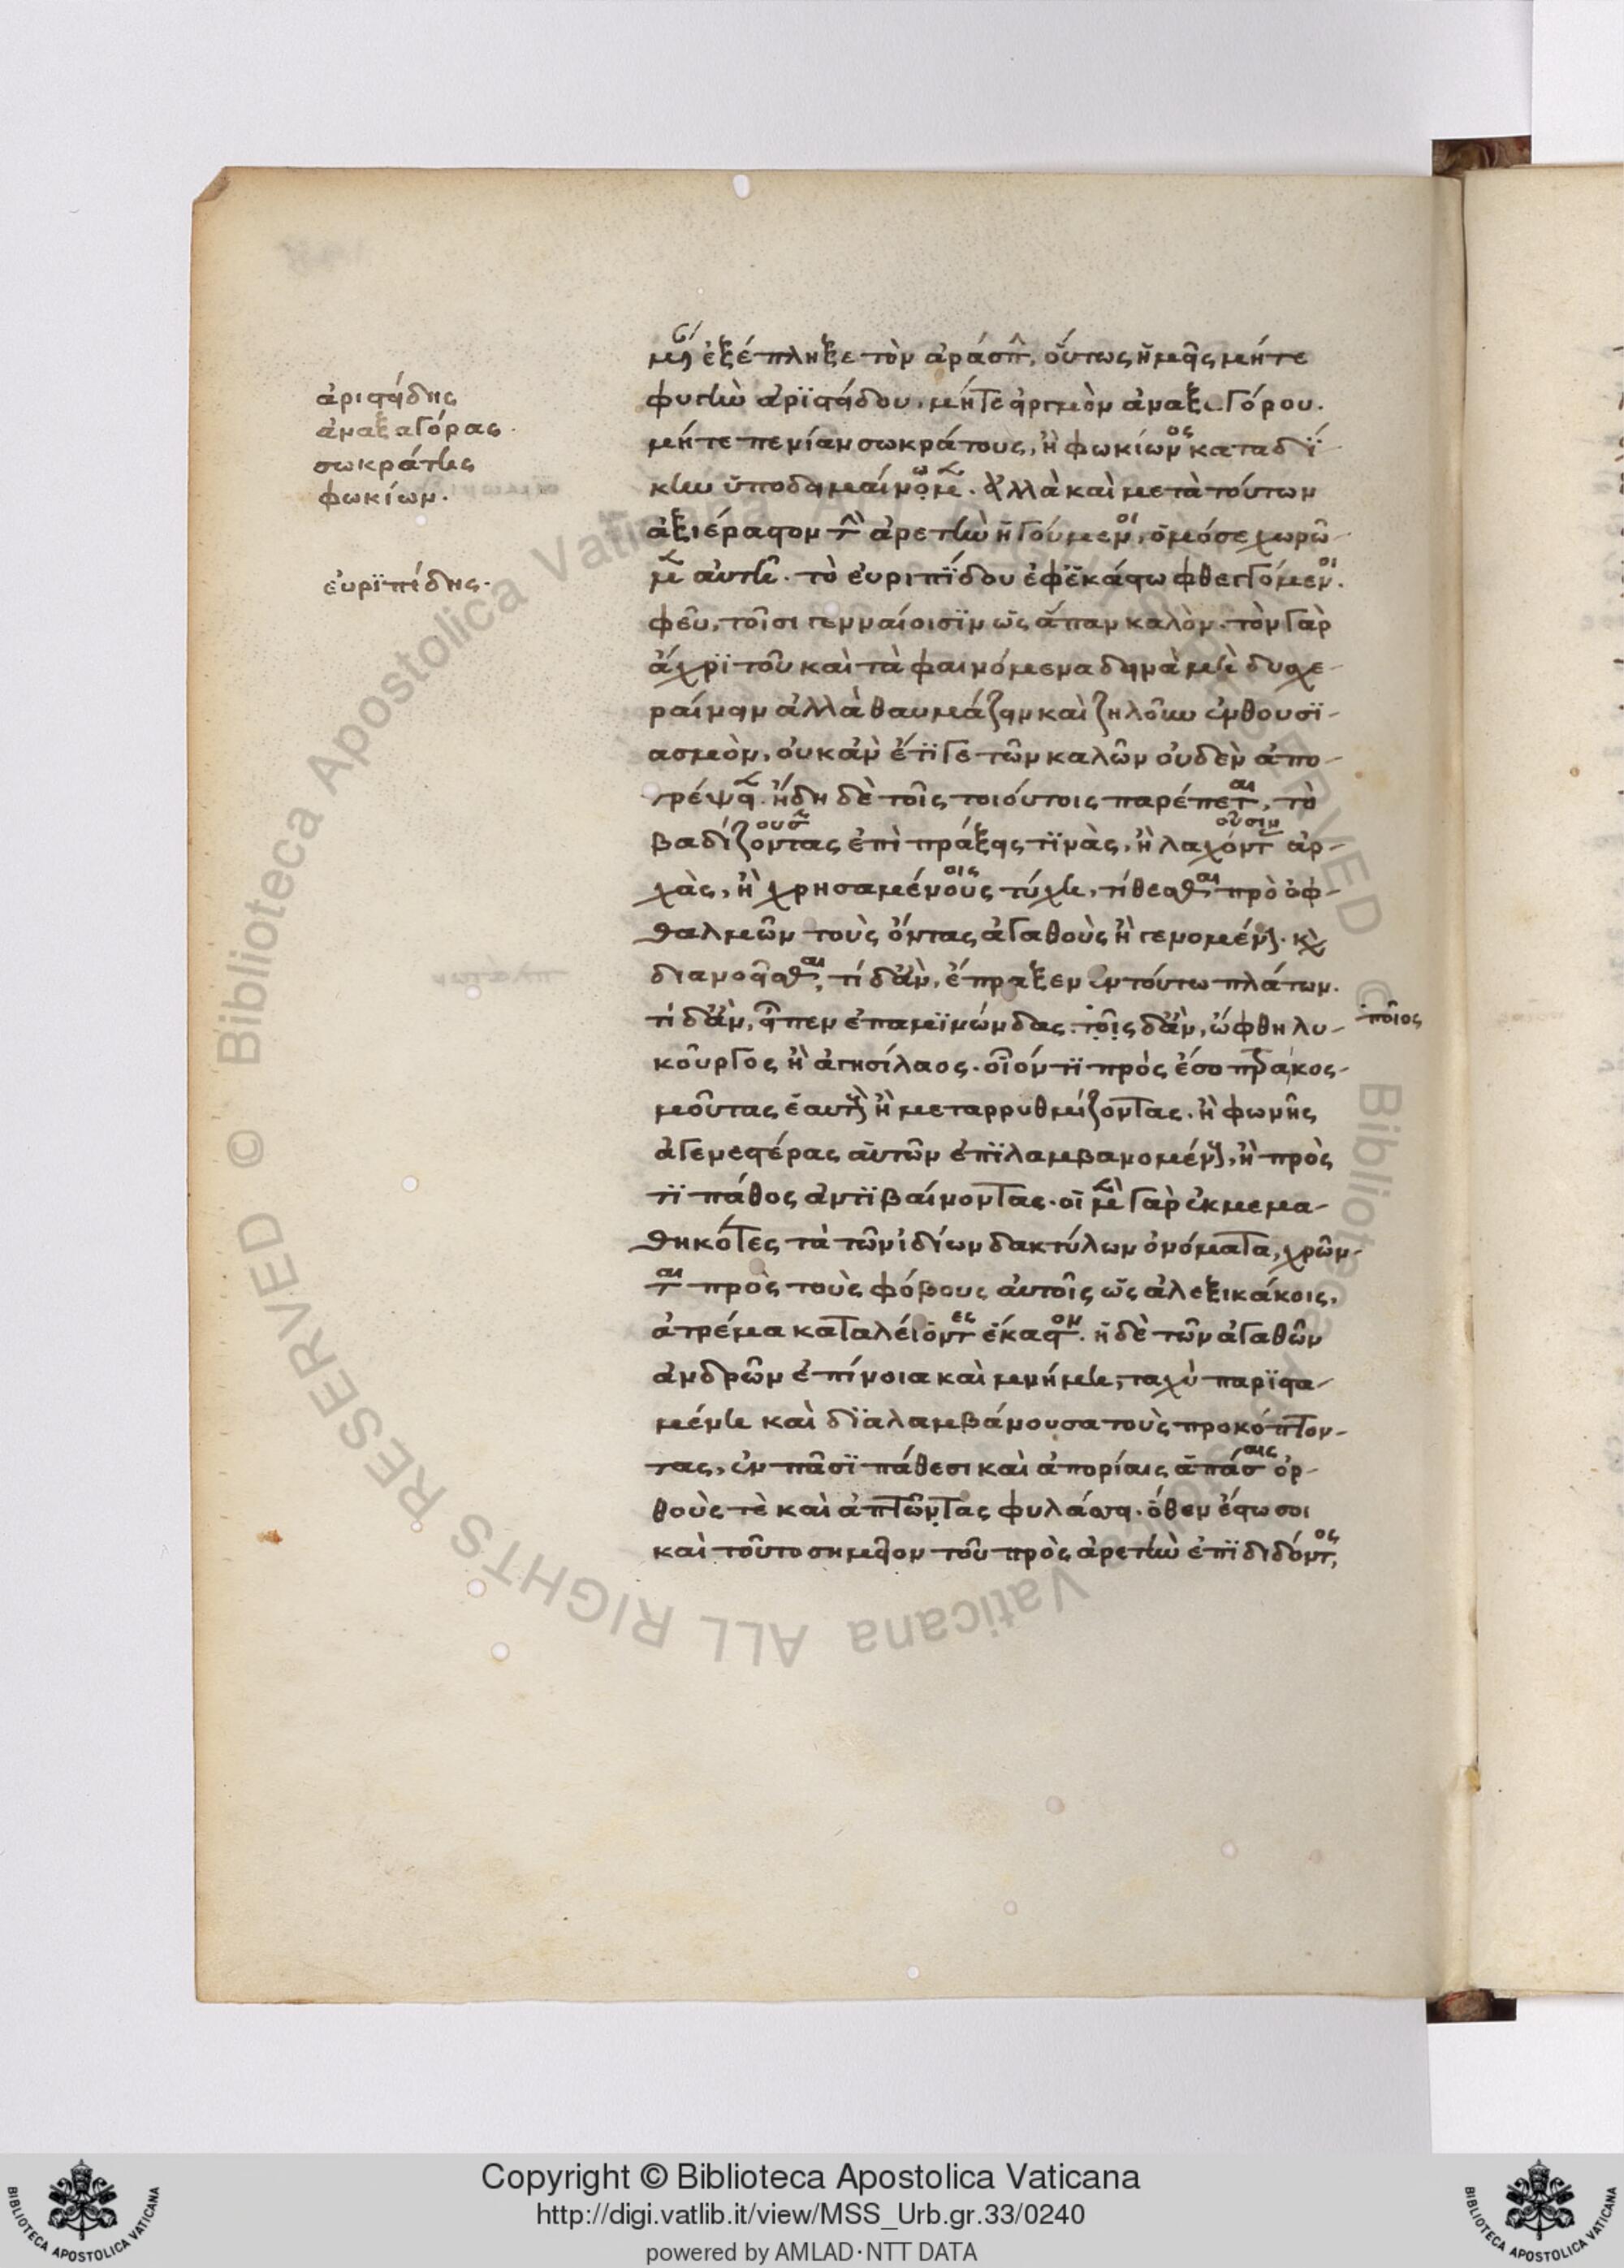 μένη ἐξέπληξε τὸν ἀράσπην, οὕτως ἡμᾶς μήτε
φυγὴν ἀρϊστείδου, μήτε εἱργμὸν ἀναξαγόρου.
μήτε πενίαν σωκράτους, ἢ φωκίωνος καταδί-
κην ὑποδειμαίνωμεν. ἀλλὰ καὶ μετὰ τούτων
ἀξιέραστον τὴν ἀρετὴν ἡγούμενοι, ὁμόσε χωρῶ-
μεν αὐτῆ. τὸ εὐριπίδου ἐφ' ἑκάστω φθεγγόμενοι.
φεῦ, τοῖσι γενναίοισϊν ὡς ἅπαν καλὸν. τὸν γὰρ
ἄχρϊ τοῦ καὶ τὰ φαινόμενα δεινὰ μὴ δυσχε-
ραίνειν ἀλλὰ θαυμάζειν καὶ ζηλοῦν ἐνθουσϊ-
ασμὸν, οὐκ ἂν ἔτϊ γε τῶν καλῶν οὐδὲν ἀπο-
τρέψειεν. ἤδη δὲ τοῖς τοιούτοις παρέπεται, τὸ
βαδίζοντας ουσι ἐπὶ πράξεις τϊνὰς, ἢ λαχόντ οῦσιν ἀρ-
χὰς, ἢ χρησαμένους οις τύχη, τίθεσθαι πρὸ ὀφ-
θαλμῶν τοὺς ὄντας ἀγαθοὺς ἢ γενομένους. καὶ
διανοεῖσθαι, τί δ' ἂν, ἔπραξεν ἐν τούτω πλάτων.
τί δ' ἂν, εἶπεν ἐπαμϊνώνδας. τοῖς δ' ἂν, ὤφθη λυ-
κοῦργος ἢ ἀγησίλαος. οἷόν τϊ πρὸς ἔσοπτρα κοσ-
μοῦντας ἑαυτοὺς ἢ μεταρρυθμίζοντας. ἢ φωνῆς
ἀγενεστέρας αὑτῶν ἐπϊλαμβανομένους, ἢ πρὸς
τϊ πάθος ἀντϊβαίνοντας. οἱ μὲν γὰρ ἐκμεμα-
θηκότες τὰ τῶν ἰδίων δακτύλων ὀνόματα, χρῶν-
ται πρὸς τοὺς φόβους αὐτοῖς ὡς ἀλεξικάκοις,
ἀτρέμα καταλέγοντες ἕκαστον. ἡ δὲ τῶν ἀγαθῶν
ἀνδρῶν ἐπίνοια καὶ μνήμη, ταχὺ παρϊστα-
μένη καὶ δϊαλαμβάνουσα τοὺς προκόπτον-
τας, ἐν πᾶσϊ πάθεσι καὶ ἀπορίαις ἁπάσαις ὀρ-
θούς τὲ καὶ ἀπτῶντας φυλάττει. ὅθεν ἔστω σοι
καὶ τοῦτο σημεῖον τοῦ πρὸς ἀρετὴν ἐπϊδιδόντος,
ἀριστείδης
ἀναξαγόρας.
σωκράτης
φωκίων.
εὐρϊπίδης.
ποῖος
Copyright © Biblioteca Apostolica Vaticana
http://digi.vatlib.it/view/MSS_Urb.gr.33/0240
powered by AMLAD·NTT DATA
BIBLIOTECA APOSTOLICA VATICANA
BIBLIOTECA APOSTOLICA VATICANA
© Biblioteca Apostolica Vaticana ALL RIGHTS RESERVED
© Biblioteca Apostolica Vaticana ALL RIGHTS RESERVED